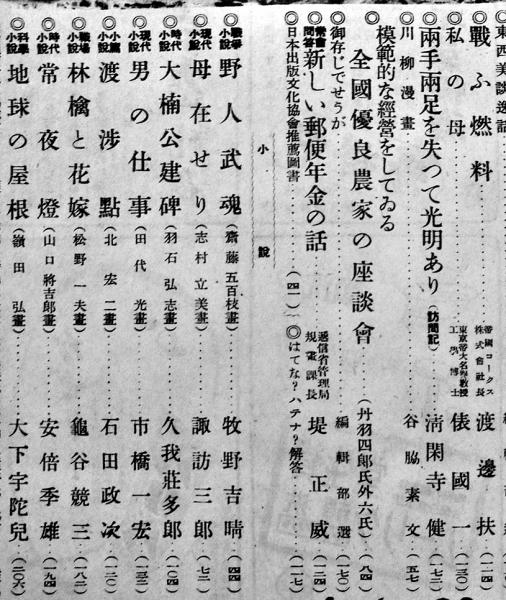 ◎東西美談逸話
◎戰ふ燃料 帝國コークス株式會社社長 渡邊扶 (一二四)
◎私の母 東京帝大名譽教授工學博士 俵國一 (一三〇)
◎兩手兩足を失つて光明あり(訪問記) 淸閑寺健 (一七二)
◎川柳漫畫 谷脇素文 (五七)
模範的な經營をしてゐる
◎全國優良農家の座談會 (丹羽四郎氏外六氏) (八四)
◎御存じでせうが 編輯部選 (一七〇)
◎問答新しい郵便年金の話 遞信省管理局規畫課長 堤正威
◎日本出版文化協會推薦圖書 (四一) ◎はてな?ハテナ?解答 (一一七)
小說
◎戰爭小說 野人武魂 (齋藤五百枝畫) 牧野吉晴 (四四)
◎現代小說 母在せり (志村立美畫) 諏訪三郎 (七二)
◎時代小說 大楠公建碑 (羽石弘志畫) 久我莊多郎 (一〇四)
◎現代小說 男の仕事 (田代光畫) 市橋一宏 (一三二)
◎小篇小說 渡涉點 (北宏二畫) 石田政次 (一二〇)
◎職場小說 林檎と花嫁 (松野一夫畫) 龜谷競三 (一八二)
◎時代小說 常夜燈 (山口將吉郎畫) 安倍季雄 (一九四)
◎科學小說 地球の屋根 (嶺田弘畫) 大下宇陀兒 (二〇六)